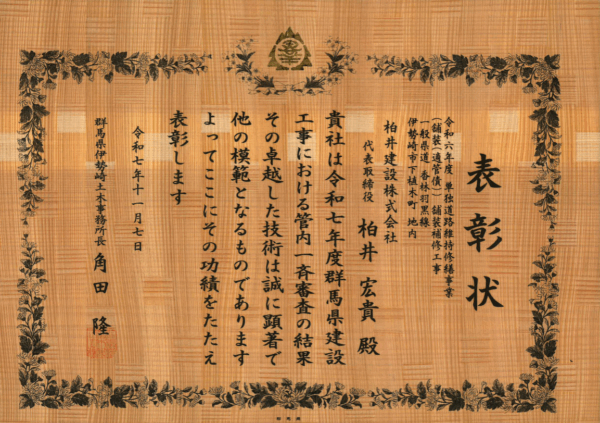 表彰状
令和六年度 単独道路維持修繕事業
(舗装(適管債))舗装補修工事
一般県道 香林羽黒線
伊勢崎市下植木町 地内
柏井建設株式会社
代表取締役 柏井 宏貴 殿
貴社は令和七年度群馬県建設
工事における管内一斉審査の結果
その卓越した技術は誠に顕著で
他の模範となるものであります
よってここにその功績をたたえ
表彰します
令和七年十一月七日
群馬県伊勢崎土木事務所長 角田 隆